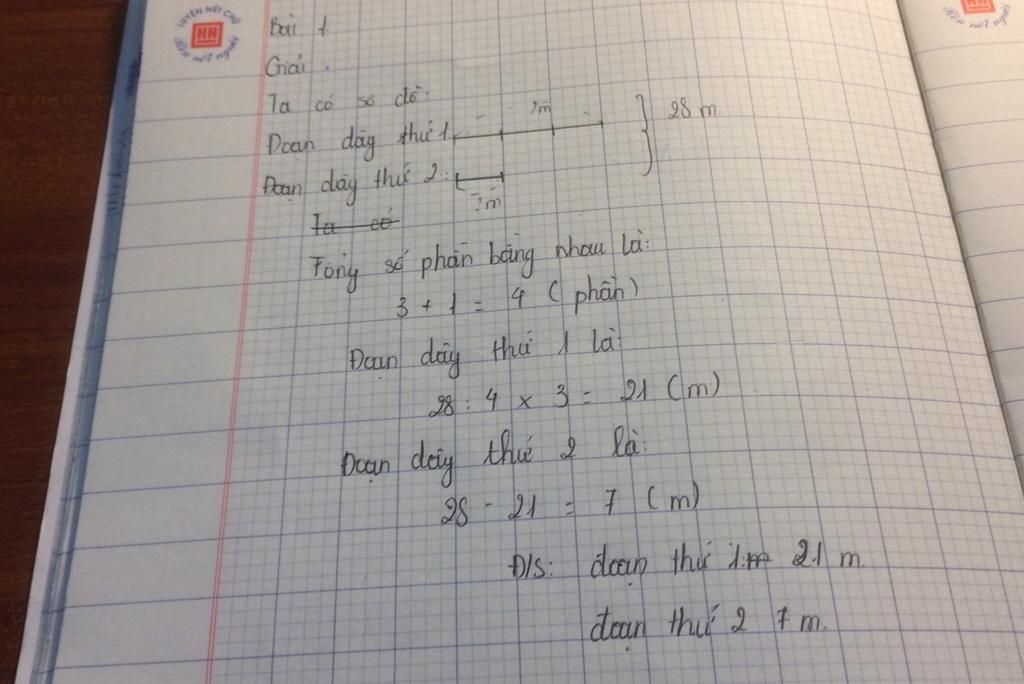 LUYỆN NÉT CHỮ
HN
RÈN NẾT NGƯỜI
Bài 1
Giải.
Ta có sơ đồ:
?m
28 m
Đoạn dây thứ 1:
Đoạn dây thứ 2:
?m
Ta có
Tổng số phần bằng nhau là:
3 + 1 = 4 ( phần)
Đoạn dây thứ 1 là:
28 : 4 x 3 = 21 (m)
Đoạn dây thứ 2 là:
28 - 21 = 7 (m)
Đ/S: đoạn thứ 1: 21 m.
đoạn thứ 2 7 m.